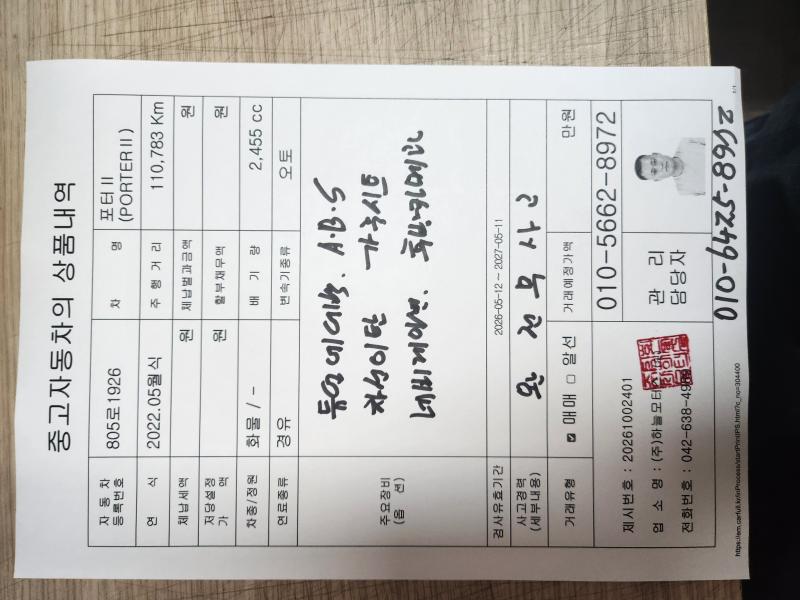 중고자동차의 상품내역
자동차등록번호 805로1926 차 명 포터II (PORTERII)
연 식 2022.05월식 주행거리 110,783 Km
체납세액 원 체납벌과금액 원
저당설정가액 원 할부채무액 원
차종/정원 화물 / - 배 기 량 2,455 cc
연료종류 경유 변속기종류 오토
주요장비 (옵 션)
A.B.S
검사유효기간 2026-05-12 ~ 2027-05-11
사고경력 (세부내용) 완전무사고
거래유형 ☑ 매매 □ 알선 거래예정가액 만원
제시번호 : 20261002401
업 소 명 : (주)하늘모터스
전화번호 : 042-638-49
관 리 담당자
010-5662-8972
010-6425-8952
1/1